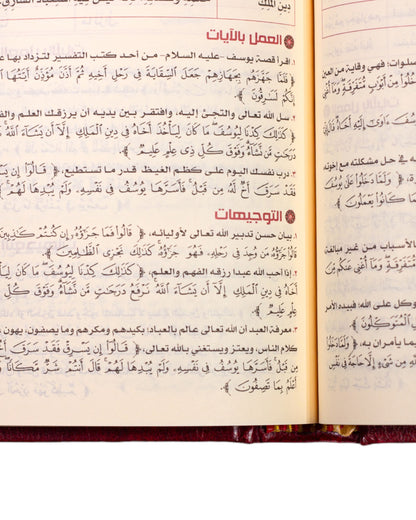 دِينِ الْمَلِكِ
العمل بالآيات
١. اقرأ قصة يوسف -عليه السلام- من أحد كتب التفسير لتزداد بها
﴿ فَلَمَّا جَهَّزَهُم بِجَهَازِهِمْ جَعَلَ ٱلسِّقَايَةَ فِى رَحْلِ أَخِيهِ ثُمَّ أَذَّنَ مُؤَذِّنٌ أَيَّتُهَا
إِنَّكُمْ لَسَٰرِقُونَ ﴾.
٢. سل الله تعالى والتجئ إليه، وافتقر بين يديه أن يرزقك العلم
﴿ كَذَٰلِكَ كِدْنَا لِيُوسُفَ ۖ مَا كَانَ لِيَأْخُذَ أَخَاهُ فِى دِينِ ٱلْمَلِكِ إِلَّآ أَن يَشَآءَ ٱللَّهُ ۚ
دَرَجَٰتٍ مَّن نَّشَآءُ ۗ وَفَوْقَ كُلِّ ذِى عِلْمٍ عَلِيمٌ ﴾.
٣. درب نفسك اليوم على كظم الغيظ قدر ما تستطيع، ﴿ قَالُوٓا۟ إِن
فَقَدْ سَرَقَ أَخٌ لَّهُۥ مِن قَبْلُ ۚ فَأَسَرَّهَا يُوسُفُ فِى نَفْسِهِۦ وَلَمْ يُبْدِهَا لَهُمْ ﴾
التوجيهات
١. بيان حسن تدبير الله تعالى لأوليائه، ﴿ قَالُوا۟ فَمَا جَزَٰٓؤُهُۥٓ إِن كُنتُمْ كَٰذِبِينَ
قَالُوا۟ جَزَٰٓؤُهُۥ مَن وُجِدَ فِى رَحْلِهِۦ فَهُوَ جَزَٰٓؤُهُۥ ۚ كَذَٰلِكَ نَجْزِى ٱلظَّٰلِمِينَ ﴾.
٢. إذا أحب الله عبدا رزقه الفهم والعلم، ﴿ كَذَٰلِكَ كِدْنَا لِيُوسُفَ ۖ مَا كَانَ
أَخَاهُ فِى دِينِ ٱلْمَلِكِ إِلَّآ أَن يَشَآءَ ٱللَّهُ ۚ نَرْفَعُ دَرَجَٰتٍ مَّن نَّشَآءُ ۗ وَفَوْقَ كُلِّ
عِلْمٍ عَلِيمٌ ﴾.
٣. معرفة العبد أن الله تعالى عالم بالعباد؛ بكيدهم ومكرهم وما يصفون، يهون
كلام الناس، ويعتز ويستغني بالله تعالى، ﴿ قَالُوٓا۟ إِن يَسْرِقْ فَقَدْ سَرَقَ أَخٌ
مِن قَبْلُ ۚ فَأَسَرَّهَا يُوسُفُ فِى نَفْسِهِۦ وَلَمْ يُبْدِهَا لَهُمْ ۚ قَالَ أَنتُمْ شَرٌّ مَّكَانًا ۖ
أَعْلَمُ بِمَا تَصِفُونَ ﴾.
صلوات؛ فهي وقاية من العين
ٱدْخُلُوا۟ مِنْ أَبْوَٰبٍ مُّتَفَرِّقَةٍ ۖ وَمَآ أُغْنِى
في حل مشكلته مع إخوته
﴿ وَلَمَّا دَخَلُوا۟ عَلَىٰ يُوسُفَ
كَانُوا۟ يَعْمَلُونَ ﴾
الأسباب من غير مبالغة
مُّتَفَرِّقَةٍ ۖ وَمَآ أُغْنِى عَنكُم مِّنَ
توكل على الله؛ فبيده الأمر
ٱلْمُتَوَكِّلُونَ ﴾.
بما يأمران به، ﴿ وَلَمَّا دَخَلُوا۟
مِن شَىْءٍ إِلَّا حَاجَةً فِى نَفْسِ